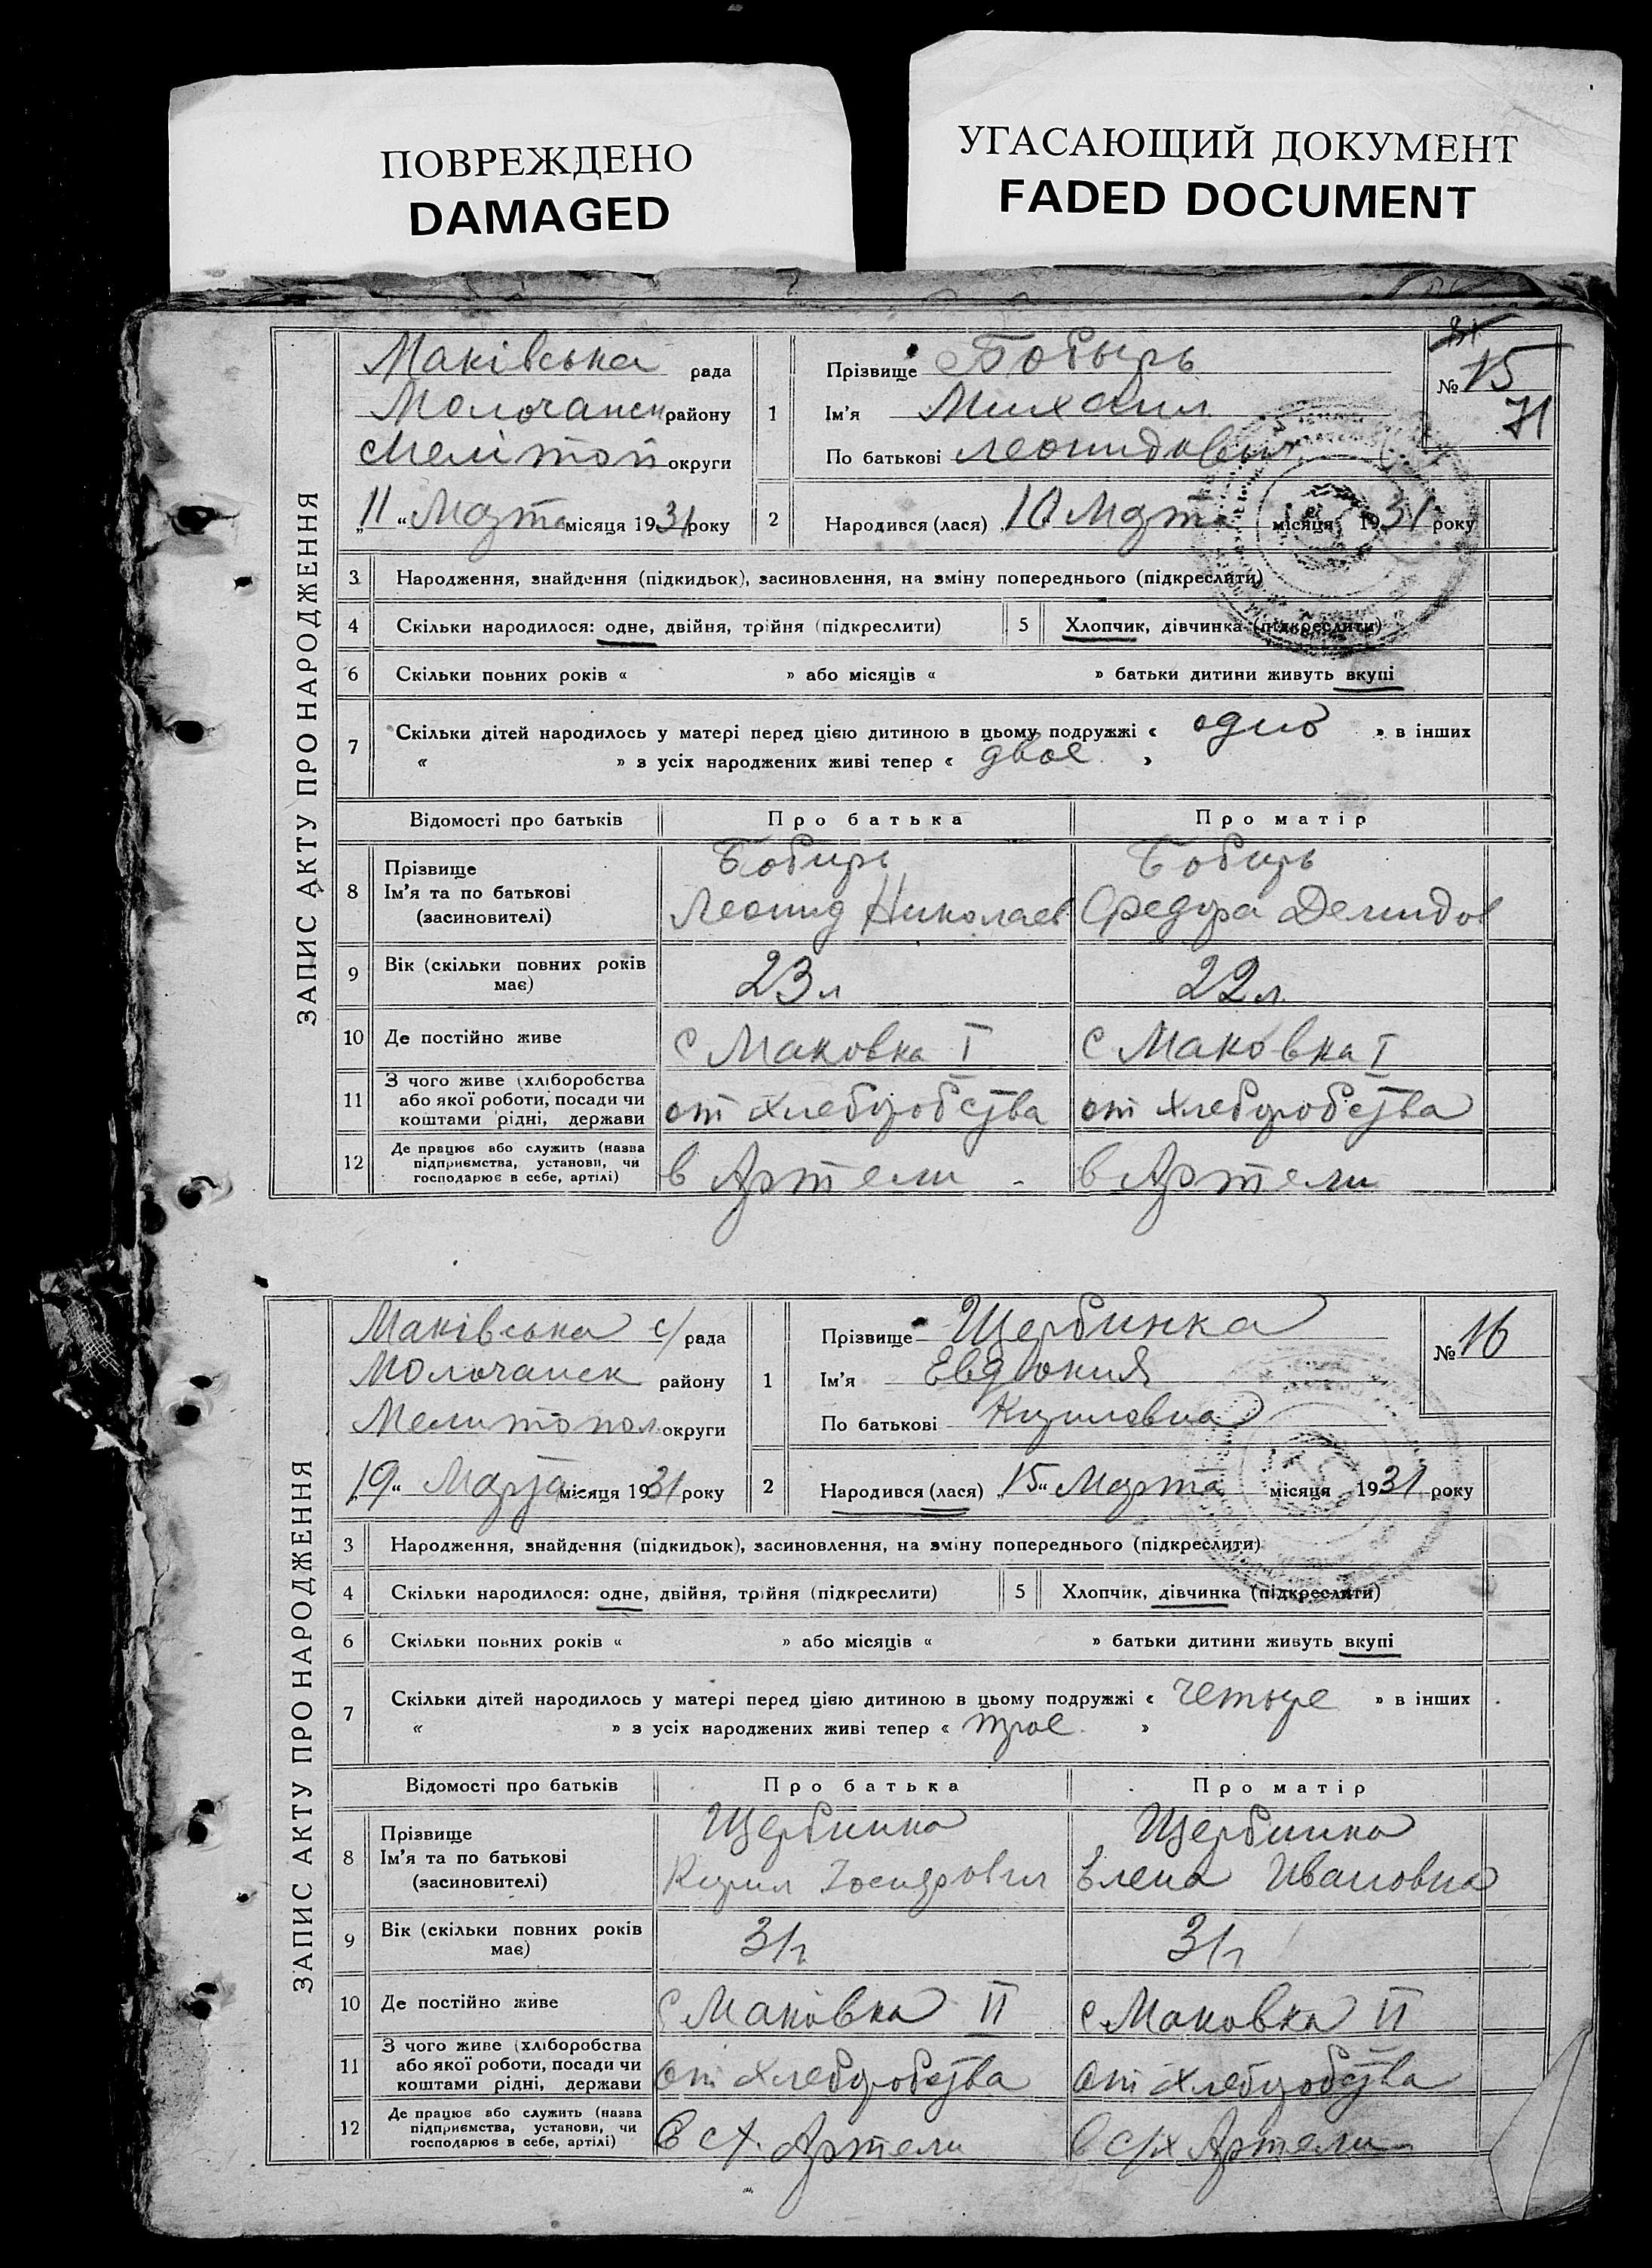 ПОВРЕЖДЕНО
DAMAGED
УГАСАЮЩИЙ ДОКУМЕНТ
FADED DOCUMENT
ЗАПИС АКТУ ПРО НАРОДЖЕННЯ
Маківська рада
Молочанск району
Мелітоп округи
„11“ Марта місяця 1931 року
1 Прізвище Бобырь
Ім'я Михаил
По батькові Леонидович
№ 15
71
2 Народився (лася) „10 Марта місяця 1931 року
3 Народження, знайдення (підкидьок), засиновлення, на зміну попереднього (підкреслити)
4 Скільки народилося: одне, двійня, трійня (підкреслити) 5 Хлопчик, дівчинка (підкреслити)
6 Скільки повних років « » або місяців « » батьки дитини живуть вкупі
7 Скільки дітей народилось у матері перед цією дитиною в цьому подружжі « одно » в інших
« » з усіх народжених живі тепер « двое »
Відомості про батьків Про батька Про матір
8 Прізвище
Ім'я та по батькові
(засиновителі)
Бобирь
Леонид Николаев
Бобирь
Федора Демидов
9 Вік (скільки повних років
має)
23 л 22 л.
10 Де постійно живе с Маковка I с Маковка I
11 З чого живе (хліборобства
або якої роботи, посади чи
коштами рідні, держави
от хлеборобства от хлеборобства
12 Де працює або служить (назва
підприємства, установи, чи
господарює в себе, артілі)
в Артели в Артели
ЗАПИС АКТУ ПРО НАРОДЖЕННЯ
Маківська с/рада
Молочанск району
Мелитопол округи
„19“ Марта місяця 1931 року
1 Прізвище Щербинка
Ім'я Евдокия
По батькові Кириловна
№ 16
2 Народився (лася) „15“ Марта місяця 1931 року
3 Народження, знайдення (підкидьок), засиновлення, на зміну попереднього (підкреслити)
4 Скільки народилося: одне, двійня, трійня (підкреслити) 5 Хлопчик, дівчинка (підкреслити)
6 Скільки повних років « » або місяців « » батьки дитини живуть вкупі
7 Скільки дітей народилось у матері перед цією дитиною в цьому подружжі « четыре » в інших
« » з усіх народжених живі тепер « трое »
Відомості про батьків Про батька Про матір
8 Прізвище
Ім'я та по батькові
(засиновителі)
Щербинка
Кирил Іосифович
Щербинка
Елена Ивановна
9 Вік (скільки повних років
має)
31 г 31 г
10 Де постійно живе с Маковка II с Маковка II
11 З чого живе (хліборобства
або якої роботи, посади чи
коштами рідні, держави
от хлеборобства от хлеборобства
12 Де працює або служить (назва
підприємства, установи, чи
господарює в себе, артілі)
В с/х. Артели в с/х Артели